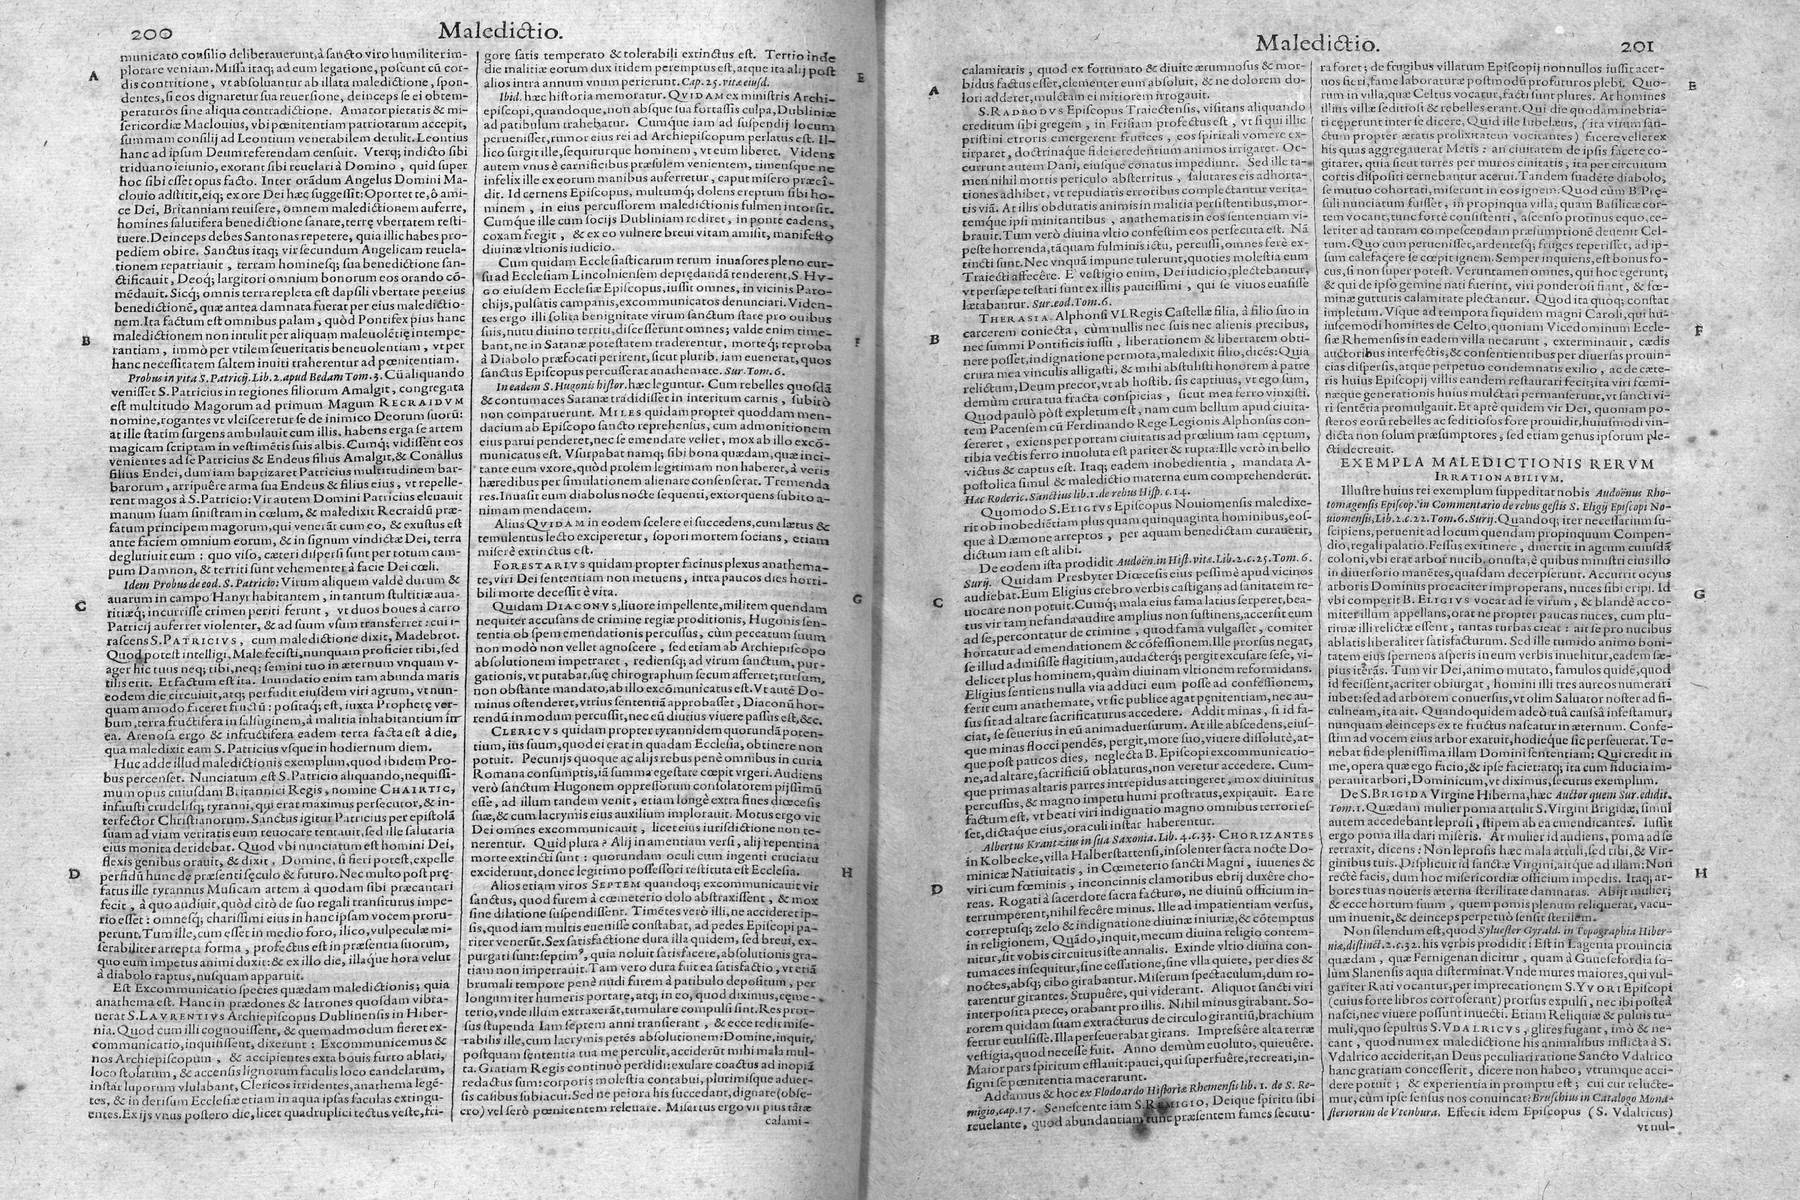 200
Maledictio.
municato consilio deliberauerunt, à sancto viro humiliter im-
plorare veniam. Missa itaq; ad eum legatione, poscunt cũ cor-
dis contritione, vt absoluantur ab illata maledictione, spon-
dentes, si eos dignaretur sua reuersione, deinceps se ei obtem-
peraturos sine aliqua contradictione. Amator pietatis & mi-
sericordiæ Maclouius, vbi pœnitentiam patriotarum accepit,
summam consilij ad Leontium venerabilem detulit. Leontius
hanc ad ipsum Deum referendam censuit. Vterq; indicto sibi
triduano ieiunio, exorant sibi reuelari à Domino, quid super
hoc sibi esset opus facto. Inter orãdum Angelus Domini Ma-
clouio adstitit, eiq; ex ore Dei hæc suggessit: Oportet te, ô ami-
ce Dei, Britanniam reuisere, omnem maledictionem auferre,
homines salutifera benedictione sanare, terrę vbertatem resti-
tuere. Deinceps debes Santonas repetere, quia illic habes pro-
pediem obire. Sanctus itaq; vir secundum Angelicam reuela-
tionem repatriauit, terram hominesq; sua benedictione san-
ctificauit, Deoq; largitori omnium bonorum eos orando cõ-
mẽdauit. Sicq; omnis terra repleta est dapsili vbertate per eius
benedictionẽ, quæ antea damnata fuerat per eius maledictio-
nem. Ita factum est omnibus palam, quòd Pontifex pius hanc
maledictionem non intulit per aliquam maleuolẽtię intempe-
rantiam, immò per vtilem seueritatis beneuolentiam, vt per
hanc necessitatem saltem inuiti traherentur ad pœnitentiam.
Probus in vita S. Patricij. Lib. 2. apud Bedam Tom. 3. Cũ aliquando
venisset S. Patricius in regiones filiorum Amalgit, congregata
est multitudo Magorum ad primum Magum RECRAIDVM
nomine, rogantes vt vlcisceretur se de inimico Deorum suorũ:
at ille statim surgens ambulauit cum illis, habens erga se artem
magicam scriptam in vestimẽtis suis albis. Cumq; vidissent eos
venientes ad se Patricius & Endeus filius Amalgit, & Conallus
filius Endei, dum iam baptizaret Patricius multitudinem bar-
barorum, arripuêre arma sua Endeus & filius eius, vt repelle-
rent magos à S. Patricio: Vir autem Domini Patricius eleuauit
manum suam sinistram in cœlum, & maledixit Recraidũ præ-
fatum principem magorum, qui venerãt cum eo, & exustus est
ante faciem omnium eorum, & in signum vindictæ Dei, terra
deglutiuit eum: quo viso, cæteri dispersi sunt per totum cam-
pum Damnon, & territi sunt vehementer à facie Dei cœli.
Idem Probus de eod. S. Patricio: Virum aliquem valdè durum &
auarum in campo Hanyr habitantem, in tantum stultitiæ aua-
ritiæq; incurrisse crimen periti ferunt, vt duos boues à carro
Patricij auferret violenter, & ad suum vsum transferret: cui i-
rascens S. PATRICIVS, cum maledictione dixit, Madebrot.
Quod potest intelligi, Male fecisti, nunquam proficiet tibi, sed
ager hic tuus neq; tibi, neq; semini tuo in æternum vnquam v-
tilis erit. Et factum est ita. Inundatio enim tam abunda maris
eodem die circuiuit, atq; perfudit eiusdem viri agrum, vt nun-
quam amodo faceret fructũ: positaq; est, iuxta Prophetę ver-
bum, terra fructifera in salsuginem, à malitia inhabitantium in
ea. Arenosa ergo & infructifera eadem terra facta est à die,
qua maledixit eam S. Patricius vsque in hodiernum diem.
Huc adde illud maledictionis exemplum, quod ibidem Pro-
bus percenset. Nunciatum est S. Patricio aliquando, nequissi-
mum opus cuiusdam Britannici Regis, nomine CHAIRTIC,
infausti crudelisq; tyranni, qui erat maximus persecutor, & in-
terfector Christianorum. Sanctus igitur Patricius per epistolã
suam ad viam veritatis eum reuocare tentauit, sed ille salutaria
eius monita deridebat. Quod vbi nunciatum est homini Dei,
flexis genibus orauit, & dixit, Domine, si fieri potest, expelle
perfidũ hunc de præsenti sęculo & futuro. Nec multo post prę-
fatus ille tyrannus Musicam artem à quodam sibi præcantari
fecit, à quo audiuit, quòd citò de suo regali transiturus impe-
rio esset: omnesq; charissimi eius in hanc ipsam vocem proru-
perunt. Tum ille, cum esset in medio foro, ilico, vulpeculæ mi-
serabiliter arrepta forma, profectus est in præsentia suorum,
quo eum impetus animi duxit: & ex illo die, illaque hora velut
à diabolo raptus, nusquam apparuit.
Est Excommunicatio species quædam maledictionis; quia
anathema est. Hanc in prædones & latrones quosdam vibra-
uerat S. LAVRENTIVS Archiepiscopus Dublinensis in Hiber-
nia. Quod cum illi cognouissent, & quemadmodum fieret ex-
communicatio, inquisissent, dixerunt: Excommunicemus &
nos Archiepiscopum, & accipientes exta bouis furto ablati,
loco stolarum, & accensis lignorum faculis loco candelarum,
instar luporum vlulabant, Clericos irridentes, anathema legẽ-
tes, & in derisum Ecclesiæ etiam in aqua ipsas faculas extingu-
entes. Ex ijs vnus postero die, licet quadruplici tectus veste, fri-
gore satis temperato & tolerabili extinctus est. Tertio inde
die malitiæ eorum dux itidem peremptus est, atque ita alij post
alios intra annum vnum perierunt. Cap. 25. vitæ eiusd.
Ibid. hæc historia memoratur. QVIDAM ex ministris Archi-
episcopi, quandoque, non absque sua fortassis culpa, Dubliniæ
ad patibulum trahebatur. Cumque iam ad suspendij locum
peruenisset, rumor eius rei ad Archiepiscopum perlatus est. Il-
lico surgit ille, sequiturque hominem, vt eum liberet. Videns
autem vnus è carnificibus præsulem venientem, timensque ne
infelix ille ex eorum manibus auferretur, caput misero præci-
dit. Id cernens Episcopus, multumq; dolens ereptum sibi ho-
minem, in eius percussorem maledictionis fulmen intorsit.
Cumq́; ille cum socijs Dubliniam rediret, in ponte cadens,
coxam fregit, & ex eo vulnere breui vitam amisit, manifesto
diuinæ vltionis iudicio.
Cum quidam Ecclesiasticarum rerum inuasores pleno cur-
su ad Ecclesiam Lincolniensem deprędandã tenderent, S. HV-
GO eiusdem Ecclesiæ Episcopus, iussit omnes, in vicinis Paro-
chijs, pulsatis campanis, excommunicatos denunciari. Viden-
tes ergo illi solita benignitate virum sanctum stare pro ouibus
suis, nutu diuino territi, discesserunt omnes; valde enim time-
bant, ne in Satanæ potestatem traderentur, morteq; reproba
à Diabolo præfocati perirent, sicut plurib. iam euenerat, quos
sanctus Episcopus percusserat anathemate. Sur. Tom. 6.
In eadem S. Hugonis histor. hæc leguntur. Cum rebelles quosdã
& contumaces Satanæ tradidisset in interitum carnis, subitò
non comparuerunt. MILES quidam propter quoddam men-
dacium ab Episcopo sancto reprehensus, cum admonitionem
eius parui penderet, nec se emendare vellet, mox ab illo excõ-
municatus est. Vsurpabat namq; sibi bona quædam, quæ inci-
tante eum vxore, quòd prolem legitimam non haberet, à veris
hæredibus per simulationem alienare consenserat. Tremenda
res. Inuasit eum diabolus nocte sequenti, extorquens subito a-
nimam mendacem.
Alius QVIDAM in eodem scelere ei succedens, cum lætus &
temulentus lecto exciperetur, sopori mortem socians, etiam
miserè extinctus est.
FORESTARIVS quidam propter facinus plexus anathema-
te, viri Dei sententiam non metuens, intra paucos dies horri-
bili morte decessit è vita.
Quidam DIACONVS, liuore impellente, militem quendam
nequiter accusans de crimine regiæ proditionis, Hugonis sen-
tentia ob spem emendationis percussus, cùm peccatum suum
non modò non vellet agnoscere, sed etiam ab Archiepiscopo
absolutionem impetraret, rediensq; ad virum sanctum, pur-
gationis, vt putabat, suę chirographum secum afferret; rursum,
non obstante mandato, ab illo excõmunicatus est. Vt autẽ Do-
minus ostenderet, vtrius sententiã approbasset, Diaconũ hor-
rendũ in modum percussit, nec eũ diutius viuere passus est, &c.
CLERICVS quidam propter tyrannidem quorundã poten-
tium, ius suum, quod ei erat in quadam Ecclesia, obtinere non
potuit. Pecunijs quoque ac alijs rebus penè omnibus in curia
Romana consumptis, iã summa egestate cœpit vrgeri. Audiens
verò sanctum Hugonem oppressorum consolatorem pijssimũ
esse, ad illum tandem venit, etiam longè extra fines diœcesis
suæ, & cum lacrymis eius auxilium implorauit. Motus ergo vir
Dei omnes excommunicauit, licet eius iurisdictione non te-
nerentur. Quid plura? Alij in amentiam versi, alij repentina
morte extincti sunt: quorundam oculi cum ingenti cruciatu
exciderunt, donec legitimo possessori restituta est Ecclesia.
Alios etiam viros SEPTEM quandoq; excommunicauit vir
sanctus, quod furem à cœmeterio dolo abstraxissent, & mox
sine dilatione suspendissent. Timẽtes verò illi, ne accideret ip-
sis, quod iam multis euenisse constabat, ad pedes Episcopi pa-
riter venerũt. Sex satisfactione dura illa quidem, sed breui, ex-
purgati sunt: septimus, quia noluit satisfacere, absolutionis gra-
tiam non imperrauit. Tam vero dura fuit ea satisfactio, vt etiã
brumali tempore penè nudi furem à patibulo depositum, per
longum iter humeris portare, atq; in eo, quod diximus, cęme-
terio, vnde illum extraxerãt, tumulare compulsi sint. Res pror-
sus stupenda. Iam septem anni transierant, & ecce redit mise-
rabilis ille, cum lacrymis petẽs absolutionem: Domine, inquit,
postquam sententia tua me perculit, acciderũt mihi mala mul-
ta. Gratiam Regis continuò perdidi: exulare coactus ad inopiã
redactus sum: corporis molestia contabui, plurimisque aduer-
sis casibus subiacui. Sed ne peiora his succedant, dignare (obse-
cro) vel serò pœnitentem releuare. Misertus ergo vir pius tãtæ
calami-
A
B
C
D
E
F
G
H
Maledictio.
201
calamitatis, quod ex fortunato & diuite ærumnosus & mor-
bidus factus esset, clementer eum absoluit, & ne dolorem do-
lori adderet, mulctam ei mitiorem irrogauit.
S. RADBODVS Episcopus Traiectensis, visitans aliquando
creditum sibi gregem, in Frisiam profectus est, vt si qui illic
pristini erroris emergerent frutices, eos spiritali vomere ex-
tirparet, doctrinaque fidei credentium animos irrigaret. Oc-
currunt autem Dani, eiusque conatus impediunt. Sed ille ta-
men nihil mortis periculo absterritus, salutares eis adhorta-
tiones adhibet, vt repudiatis erroribus complectantur verita-
tis viã. At illis obduratis animis in malitia persistentibus, mor-
temque ipsi minitantibus, anathematis in eos sententiam vi-
brauit. Tum verò diuina vltio confestim eos perfecuta est. Nã
peste horrenda, tãquam fulminis ictu, percussi, omnes ferè ex-
tincti sunt. Nec vnquã impune tulerunt, quoties molestia eum
Traiecti affecêre. E vestigio enim, Dei iudicio, plectebantur,
vt persæpe testati sunt ex illis paucissimi, qui se viuos euasisse
lætabantur. Sur. eod. Tom. 6.
THERASIA. Alphonsi VI. Regis Castellæ filia, à filio suo in
carcerem coniecta, cùm nullis nec suis nec alienis precibus,
nec summi Pontificis iussu, liberationem & libertatem obti-
nere posset, indignatione permota, maledixit filio, dicẽs: Quia
crura mea vinculis alligasti, & mihi abstulisti honorem à patre
relictum, Deum precor, vt ab hostib. sis captiuus, vt ego sum,
demùm crura tua fracta conspicias, sicut mea ferro vinxisti.
Quod paulò pòst expletum est, nam cum bellum apud ciuita-
tem Pacensem cũ Ferdinando Rege Legionis Alphonsus con-
sereret, exiens per portam ciuitatis ad prœlium iam cęptum,
tibia vectis ferro inuoluta est pariter & rupta: Ille verò in bello
victus & captus est. Itaq; eadem inobedientia, mandata A-
postolica simul & maledictio materna eum comprehenderũt.
Hæc Roderic. Sanctius lib. 1. de rebus Hisp. c. 14.
Quomodo S. ELIGIVS Episcopus Nouiomensis maledixe-
rit ob inobediẽtiam plus quam quinquaginta hominibus, eos-
que à Dæmone arreptos, per aquam benedictam curauerit,
dictum iam est alibi.
De eodem ista prodidit Audoën. in Hist. vitæ. Lib. 2. c. 25. Tom. 6.
Surij. Quidam Presbyter Diœcesis eius pessimè apud vicinos
audiebat. Eum Eligius crebro verbis castigans ad sanitatem re-
uocare non potuit. Cumq; mala eius fama latius serperet, bea-
tus vir tam nefanda audire amplius non sustinens, accersit eum
ad se, percontatur de crimine, quod fama vulgasset, comiter
hortatur ad emendationem & cõfessionem. Ille prorsus negat,
se illud admisisse flagitium, audacterq; pergit excusare sese, vi-
delicet plus hominem, quàm diuinam vltionem reformidans.
Eligius sentiens nulla via adduci eum posse ad confessionem,
ferit eum anathemate, vt sic publice agat pęnitentiam, nec au-
sus sit ad altare sacrificaturus accedere. Addit minas, si id fa-
ciat, se seuerius in eũ animaduersurum. At ille abscedens, eius-
que minas flocci pendẽs, pergit, more suo, viuere dissolutè, at-
que post paucos dies, neglecta B. Episcopi excommunicatio-
ne, ad altare, sacrificiũ oblaturus, non veretur accedere. Cum-
que primas altaris partes intrepidus attingeret, mox diuinitus
percussus, & magno impetu humi prostratus, expirauit. Ea re
factum est, vt beati viri indignatio magno omnibus terrori es-
set, dictaque eius, oraculi instar haberentur.
Albertus Krantzius in sua Saxonia. Lib. 4. c. 33. CHORIZANTES
in Kolbecke, villa Halberstattensi, insolenter sacra nocte Do-
minicæ Natiuitatis, in Cœmeterio sancti Magni, iuuenes &
viri cum fœminis, inconcinnis clamoribus ebrij duxêre cho-
reas. Rogati à sacerdote sacra facturo, ne diuinũ officium in-
terrumperent, nihil fecêre minus. Ille ad impatientiam versus,
correptusq; zelo & indignatione diuinæ iniuriæ, & cõtemptus
in religionem, Quãdo, inquit, mecum diuina religio contem-
nitur, sit vobis circuitus iste annalis. Exinde vltio diuina con-
tumaces insequitur, sine cessatione, sine vlla quiete, per dies &
noctes, absq; cibo girabantur. Miserum spectaculum, dum ro-
tarentur girantes. Stupuêre, qui viderant. Aliquot sancti viri
interposita prece, orabant pro illis. Nihil minus girabant. So-
rorem quidam suam extracturus de circulo girantiũ, brachium
fertur euulsisse. Illa perseuerabat girans. Impresêre alta terræ
vestigia, quod necesse fuit. Anno demùm euoluto, quieuêre.
Maior pars spiritum efflauit: pauci, qui superfuêre, recreati, in-
signi se pœnitentia macerarunt.
Addamus & hoc ex Flodoardo Historiæ Rhemensis lib. 1. de S. Re-
migio, cap. 17. Senescente iam S. REMIGIO, Deique spiritu sibi
reuelante, quod abundantiam tunc præsentem fames secutu-
ra foret; de frugibus villarum Episcopij nonnullos iussit acer-
uos fieri, fame laboraturæ postmodũ profuturos plebi. Quo-
rum in villa, quæ Celtus vocatur, facti sunt plures. At homines
illius villæ seditiosi & rebelles erant. Qui die quodam inebria-
ti cęperunt inter se dicere, Quid ille Iubelæus, (ita virum san-
ctum propter ætatis prolixitatem vocitantes) facere vellet ex
his quas aggregauerat Metis: an ciuitatem de ipsis facere co-
gitaret, quia sicut turres per muros ciuitatis; ita per circuitum
cortis dispositi cernebantur acerui. Tandem suadete diabolo,
se mutuo cohortati, miserunt in eos ignem: Quod cùm B. Pre-
suli nunciatum fuisset, in propinqua villa, quam Basilicæ cor-
tem vocant, tunc fortè consistenti, ascenso protinus equo, ce-
leriter ad tantam compescendam præsumptionẽ deuenit Cel-
tum. Quo cum peruenisset, ardentesq; fruges reperisset, ad ip-
sum calefacere se cœpit ignem. Semper inquiens, est bonus fo-
cus, si non super potest. Veruntamen omnes, qui hoc egerunt,
& qui de ipso gemine nati fuerint, viri ponderosi fiant, & fœ-
minæ gutturis calamitate plectantur. Quod ita quoq; constat
impletum. Vsque ad tempora siquidem magni Caroli, qui hu-
iuscemodi homines de Celto, quoniam Vicedominum Eccle-
siæ Rhemensis in eadem villa necarunt, exterminauit, cædis
auctoribus interfectis, & consentientibus per diuersas prouin-
cias dispersis, atque perpetuo condemnatis exilio, ac de cæte-
ris huius Episcopij villis eandem restaurari fecit; ita viri fœmi-
næque generationis huius mulctari permanserunt, vt sancti vi-
ri sentẽtia promulgauit. Et aptè quidem vir Dei, quoniam po-
steros eorũ rebelles ac seditiosos fore prouidit, huiusmodi vin-
dicta non solum præsumptores, sed etiam genus ipsorum ple-
cti decreuit.
EXEMPLA MALEDICTIONIS RERVM
IRRATIONABILIVM.
Illustre huius rei exemplum suppeditat nobis Audoënus Rho-
tomagensis Episcop. in Commentario de rebus gestis S. Eligij Episcopi No-
uiomensis, Lib. 2. c. 22. Tom. 6. Surij. Quandoq; iter necessarium su-
scipiens, peruenit ad locum quendam propinquum Compen-
dio, regali palatio. Fessus ex itinere, diuertit in agrum cuiusdã
coloni, vbi erat arbor nucib. onusta, è quibus ministri eius illo
in diuersorio manẽtes, quasdam decerpserunt. Accurrit ocyus
arboris Dominus procaciter improperans, nuces sibi eripi. Id
vbi comperit B. ELIGIVS vocat ad se virum, & blandè ac co-
miter illum appellans, orat ne propter paucas nuces, cum plu-
rimæ illi relictæ essent, tantas turbas cieat: ait se pro nucibus
ablatis liberaliter satisfacturum. Sed ille tumido animo boni-
tatem eius spernens asperis in eum verbis inuehitur, eadem sæ-
pius iterãs. Tum vir Dei, animo mutato, famulos quidẽ, quod
id fecissent, acriter obiurgat, homini illi tres aureos numerari
iubet: sed ad arborem conuersus, vt olim Saluator noster ad fi-
culneam, ita ait. Quandoquidem adeò tuâ causâ infestamur,
nunquam deinceps ex te fructus nascatur in æternum. Confe-
stim ad vocem eius arbor exaruit, hodieque sic perseuerat. Te-
nebat fide plenissima illam Domini sententiam: Qui credit in
me, opera quæ ego facio, & ipse faciet: atq; ita cum fiducia im-
perauit arbori, Dominicum, vt diximus, secutus exemplum.
De S. BRIGIDA Virgine Hiberna, hæc Auctor quem Sur. edidit.
Tom. 1. Quædam mulier poma attulit S. Virgini Brigidæ, simul
autem accedebant leprosi, stipem ab ea emendicantes. Iussit
ergo poma illa dari miseris. At mulier id audiens, poma ad se
retraxit, dicens: Non leprosis hæc mala attuli, sed tibi, & Vir-
ginibus tuis. Displicuit id sanctæ Virgini, aitque ad illam: Non
rectè facis, dum hoc misericordiæ officium impedis. Itaq; ar-
bores tuas noueris æterna sterilitate damnatas. Abijt mulier;
& ecce hortum suum, quem pomis plenum reliquerat, vacu-
um inuenit, & deinceps perpetuò sensit sterilem.
Non silendum est, quod Sylvester Gyrald. in Topographia Hiber-
niæ, distinct. 2. c. 32. his verbis prodidit: Est in Lagenia prouincia
quædam, quæ Fernigenan dicitur, quam à Gueuefordia so-
lùm Slanensis aqua disterminat. Vnde mures maiores, qui vul-
gariter Rati vocantur, per imprecationem S. YVORI Episcopi
(cuius forte libros corroserant) prorsus expulsi, nec ibi posteà
nasci, nec viuere possunt inuecti. Etiam Reliquiæ & puluis tu-
muli, quo sepultus S. VDALRICVS, glires fugant, imò & ne-
cant, quod num ex maledictione his animalibus inflicta à S.
Vdalrico acciderit, an Deus peculiari ratione Sancto Vdalrico
hanc gratiam concesserit, dicere non habeo, vtrumque acci-
dere potuit; & experientia in promptu est; cui cur relucte-
mur, cùm ipse sensus nos conuincat? Bruschius in Catalogo Mona-
steriorum de Vtenbura. Effecit idem Episcopus (S. Vdalricus)
vt nul-
A
B
C
D
E
F
G
H